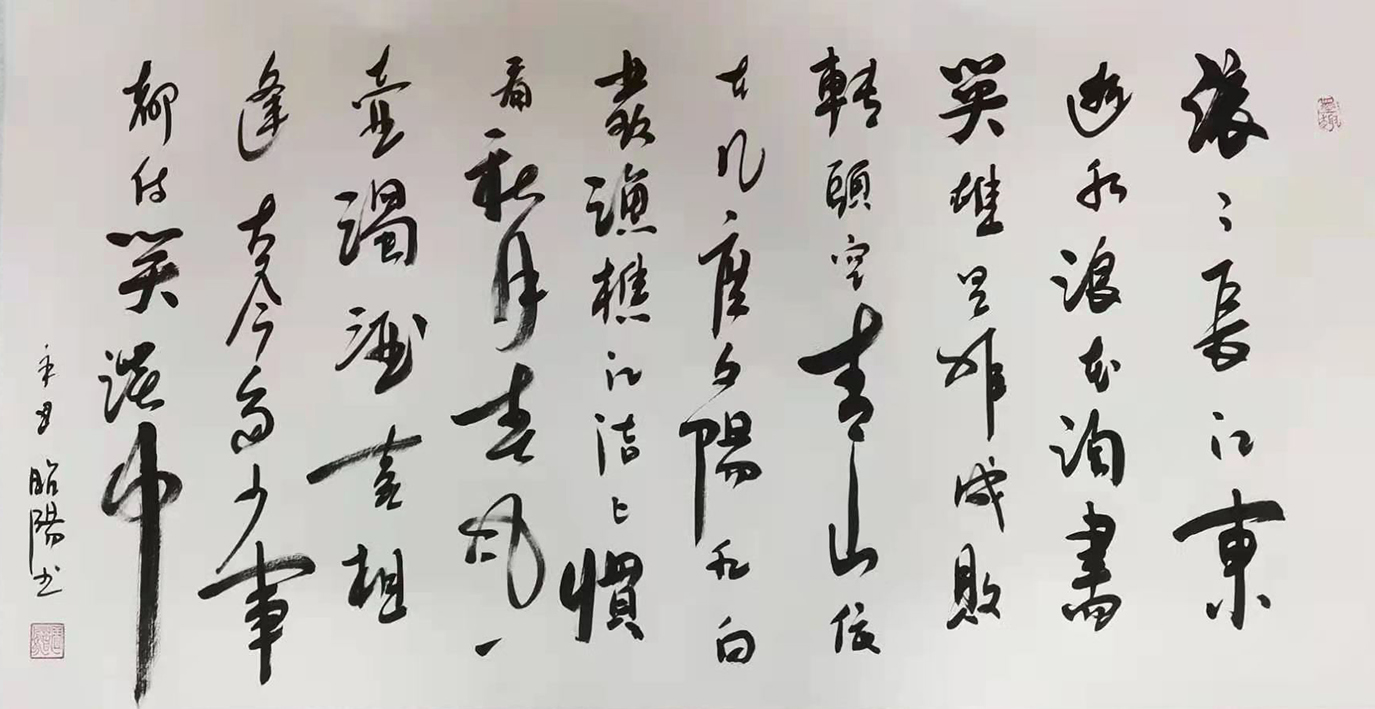 滚〻長江東
逝水浪花淘盡
英雄是非成敗
轉頭空青山依
在几度夕陽紅白
髮漁樵江渚上慣
看秋月春風一
壺濁酒喜相
逢古今多少事
都付笑談中
辛丑昭陽书